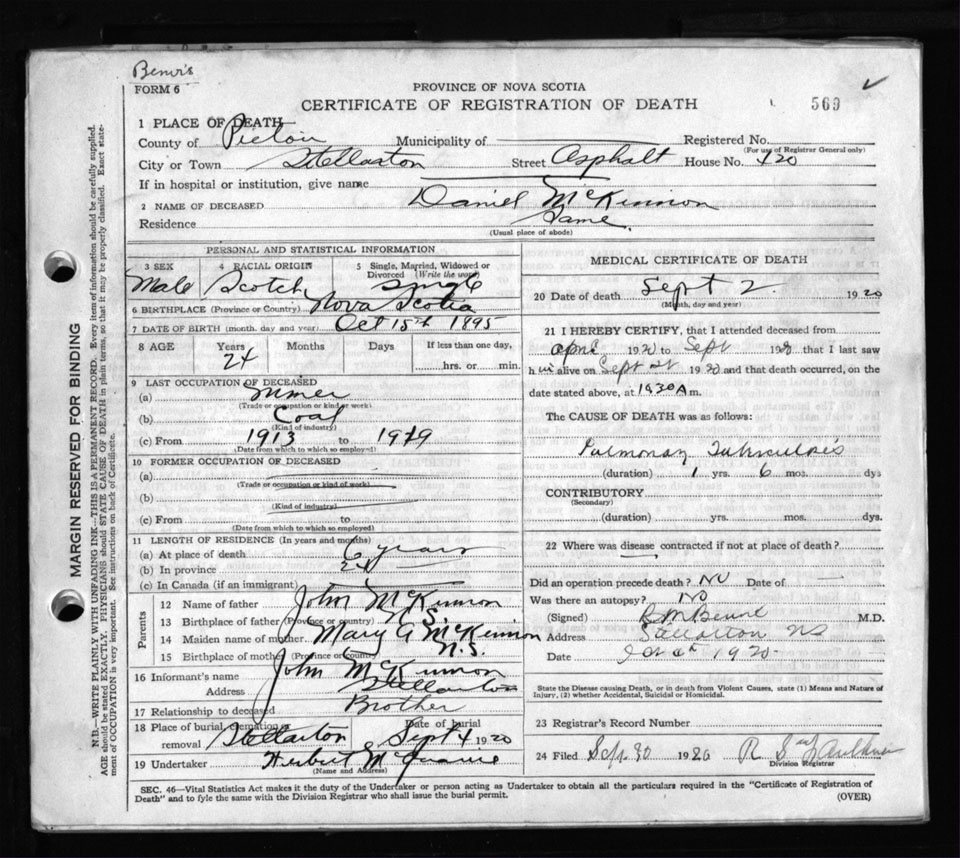 Benvi's
FORM 6
PROVINCE OF NOVA SCOTIA
CERTIFICATE OF REGISTRATION OF DEATH
569
1 PLACE OF DEATH
County of Pictou Municipality of Registered No.
(For use of Registrar General only)
City or Town Stellarton Street Asphalt House No. 120
If in hospital or institution, give name
2 NAME OF DECEASED Daniel McKinnon
Residence Same
(Usual place of abode)
PERSONAL AND STATISTICAL INFORMATION
3 SEX Male
4 RACIAL ORIGIN Scotch
5 Single, Married, Widowed or Divorced (Write the word) Single
6 BIRTHPLACE (Province or Country) Nova Scotia
7 DATE OF BIRTH (month, day and year) Oct 15th 1895
8 AGE Years Months Days If less than one day,
24 hrs. or min.
9 LAST OCCUPATION OF DECEASED
(a) Miner
(Trade or occupation or kind of work)
(b) Coal
(Kind of industry)
(c) From 1913 to 1919
(Date from which to which so employed)
10 FORMER OCCUPATION OF DECEASED
(a)
(Trade or occupation or kind of work)
(b)
(Kind of industry)
(c) From to
(Date from which to which so employed)
11 LENGTH OF RESIDENCE (In years and months)
(a) At place of death 6 years
(b) In province 24
(c) In Canada (if an immigrant)
Parents
12 Name of father John McKinnon
13 Birthplace of father (Province or country) N.S.
14 Maiden name of mother Mary A McKinnon
15 Birthplace of mother (Province or country) N.S.
16 Informant's name John McKinnon
Address Stellarton
17 Relationship to deceased Brother
18 Place of burial, cremation or removal Stellarton Date of burial Sept 4 1920
19 Undertaker Herbert McQuarrie
(Name and Address)
MEDICAL CERTIFICATE OF DEATH
20 Date of death Sept 2 1920
(Month, day and year)
21 I HEREBY CERTIFY, that I attended deceased from
April 1920 to Sept 1920 that I last saw
him alive on Sept 1920 and that death occurred, on the
date stated above, at 1030 A m.
The CAUSE OF DEATH was as follows:
Pulmonary Tuberculosis
(duration) 1 yrs. 6 mos. dys
CONTRIBUTORY
(Secondary)
(duration) yrs. mos. dys.
22 Where was disease contracted if not at place of death?
Did an operation precede death? No Date of
Was there an autopsy? No
(Signed) M.D.
Address Stellarton NS
Date 1920
State the Disease causing Death, or in death from Violent Causes, state (1) Means and Nature of
Injury, (2) whether Accidental, Suicidal or Homicidal.
23 Registrar's Record Number
24 Filed Sep. 30 1920 R S Faulkner
Division Registrar
SEC. 46—Vital Statistics Act makes it the duty of the Undertaker or person acting as Undertaker to obtain all the particulars required in the "Certificate of Registration of
Death" and to fyle the same with the Division Registrar who shall issue the burial permit.
(OVER)
MARGIN RESERVED FOR BINDING
N.B.—WRITE PLAINLY WITH UNFADING INK—THIS IS A PERMANENT RECORD. Every item of information should be carefully supplied.
AGE should be stated EXACTLY. PHYSICIANS should STATE CAUSE OF DEATH in plain terms, so that it may be properly classified. Exact state-
ment of OCCUPATION is very important. See instructions on back of Certificate.